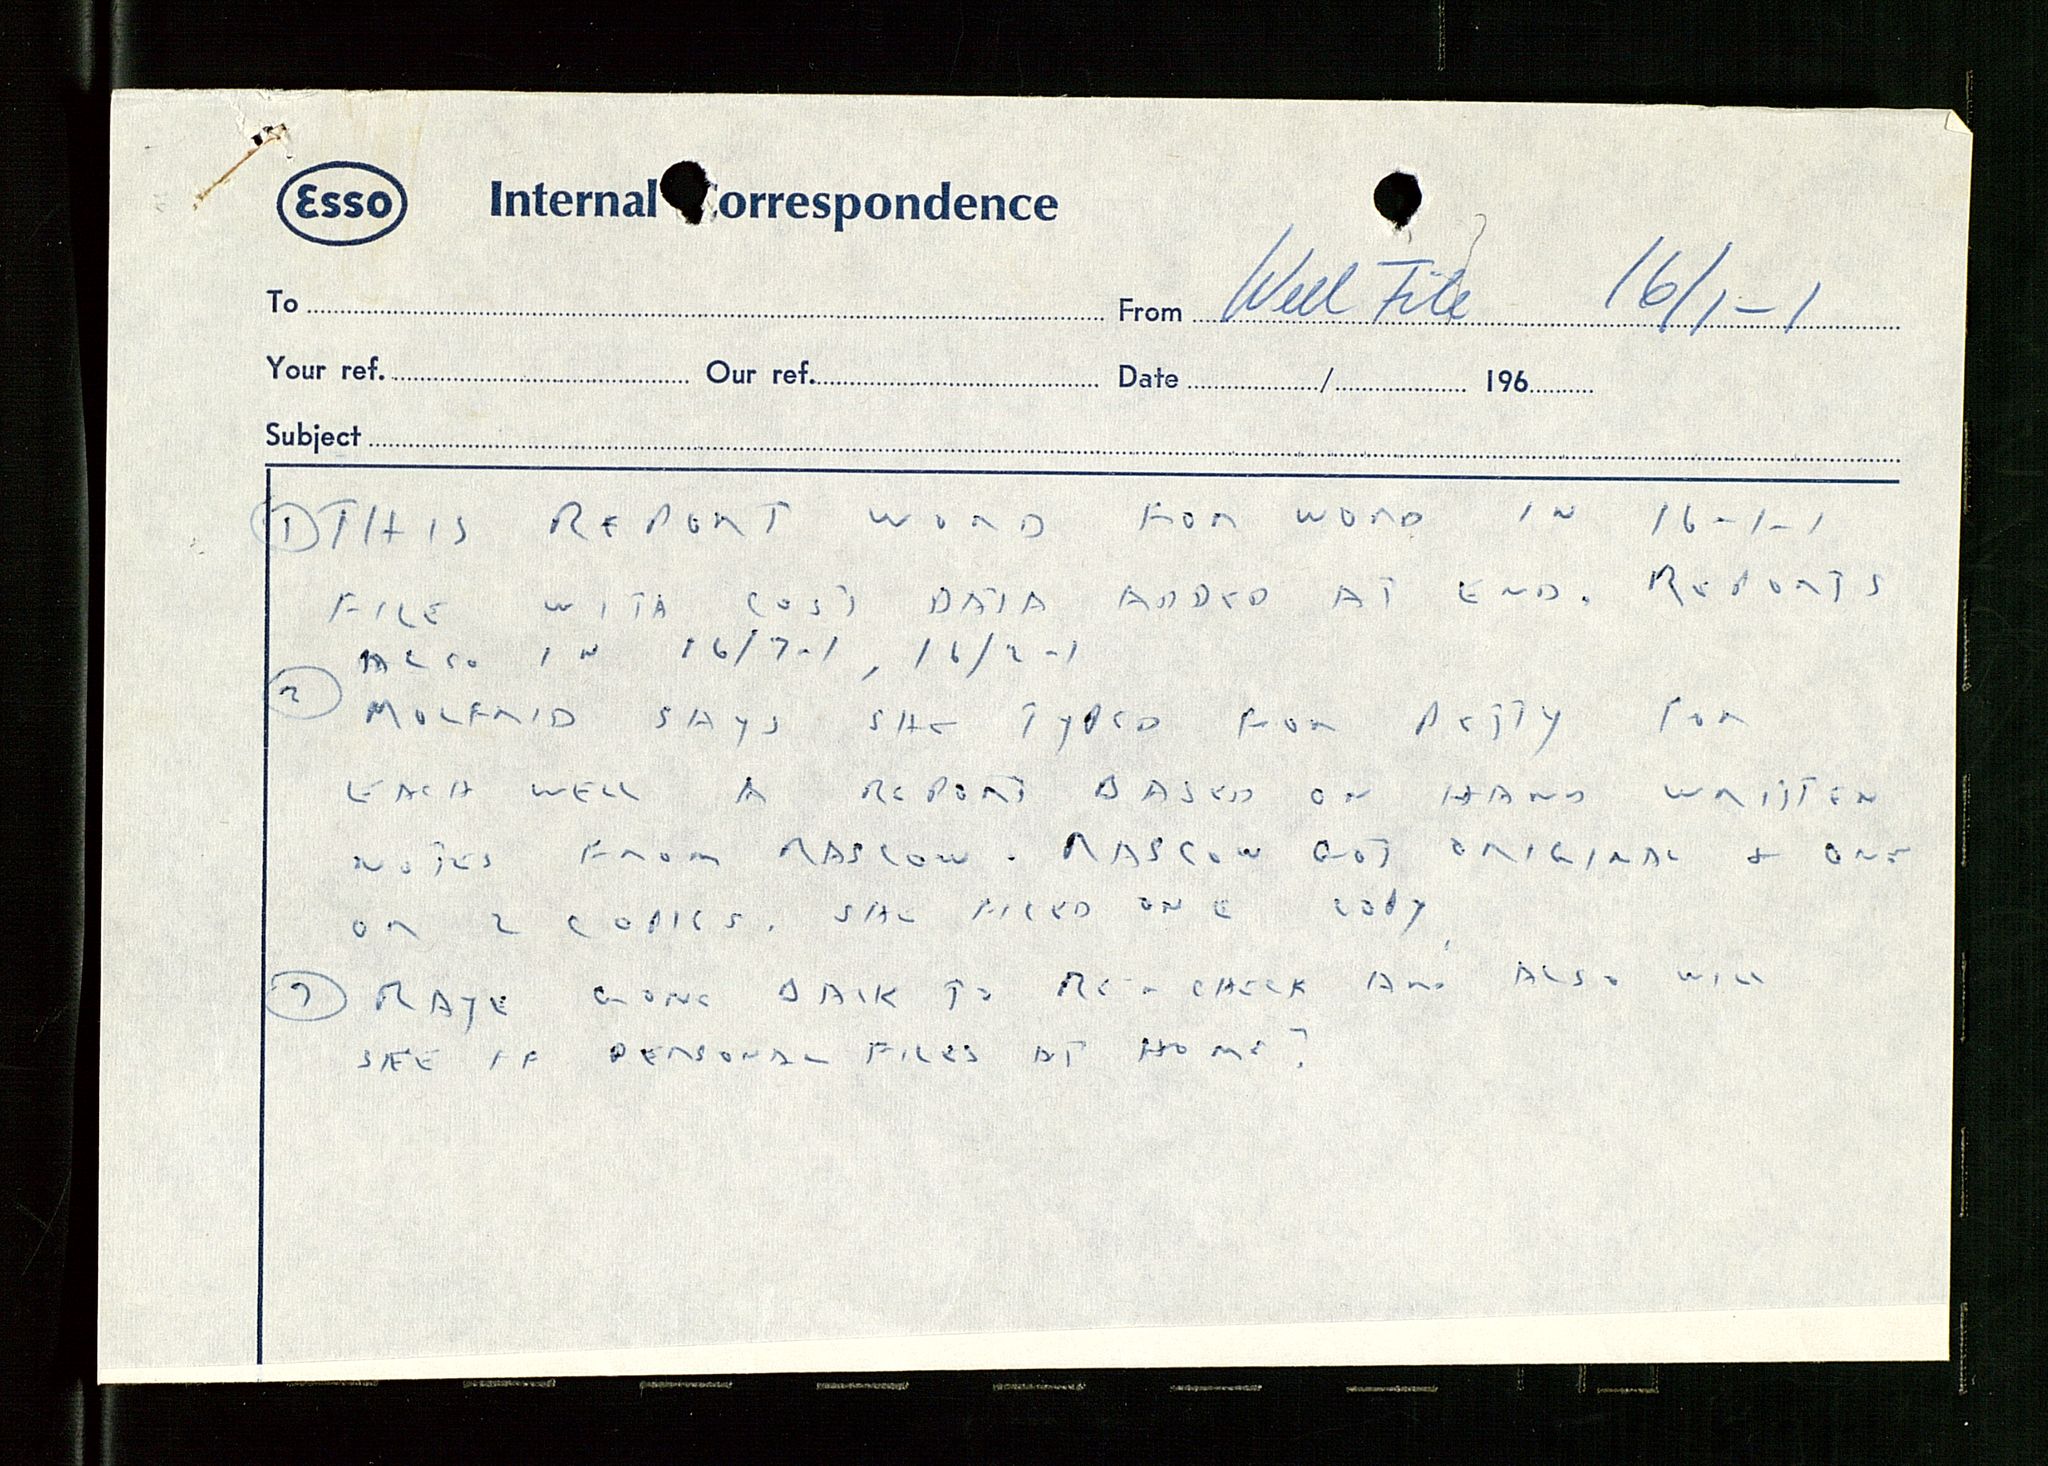 Esso Internal Correspondence
To From Well File 16/1-1
Your ref. Our ref. Date / 196
Subject
① THIS REPORT WORD FOR WORD IN 16-1-1
FILE WITH COST DATA ADDED AT END. REPORTS
ALSO IN 16/7-1, 16/2-1
② MOLFRID SAYS SHE TYPED FOR PETTY FOR
EACH WELL A REPORT BASED ON HAND WRITTEN
NOTES FROM RASCOW. RASCOW GOT ORIGINAL & ONE
OR 2 COPIES. SHE FILED ONE COPY.
RAYE GONE BACK TO RE-CHECK AND ALSO WILL
SEE IF PERSONAL FILES AT HOME?